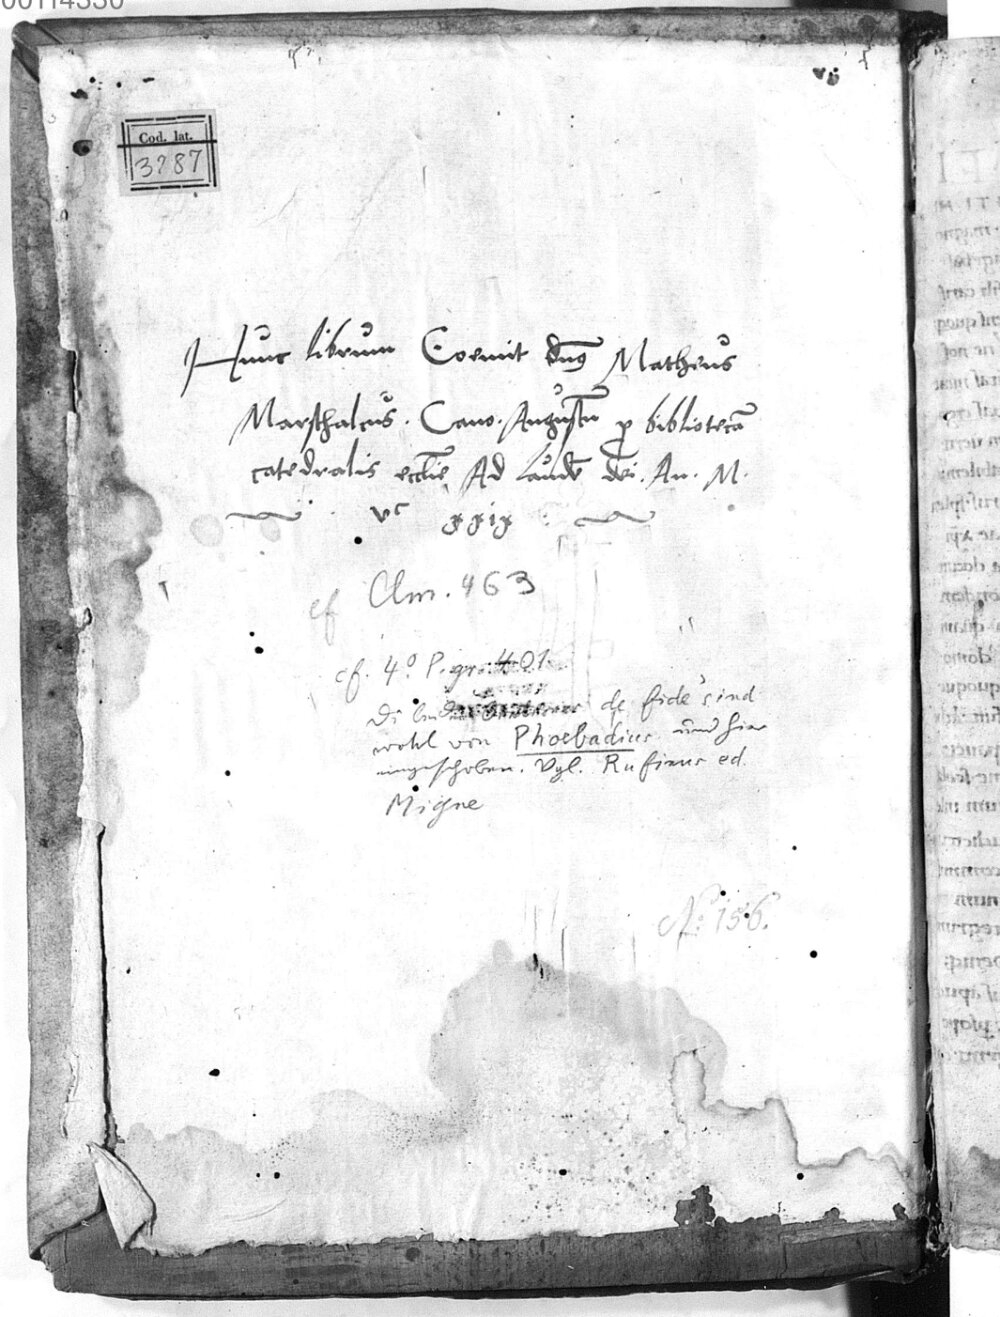 00114330
Cod. lat.
3787
Hunc librum Coemit dn̄s Matheus
Marschalcus. Cano. Augusten̄ ꝓ bibliotecā
catedralis ecclīe Ad laudē dei. An. M.
vᶜ xxix
cf Clm. 463
cf. 4° P. gr. 401.
de fide sind
wohl von Phoebadius und hier
eingeschoben. Vgl. Rufinus ed.
Migne
N: 156.